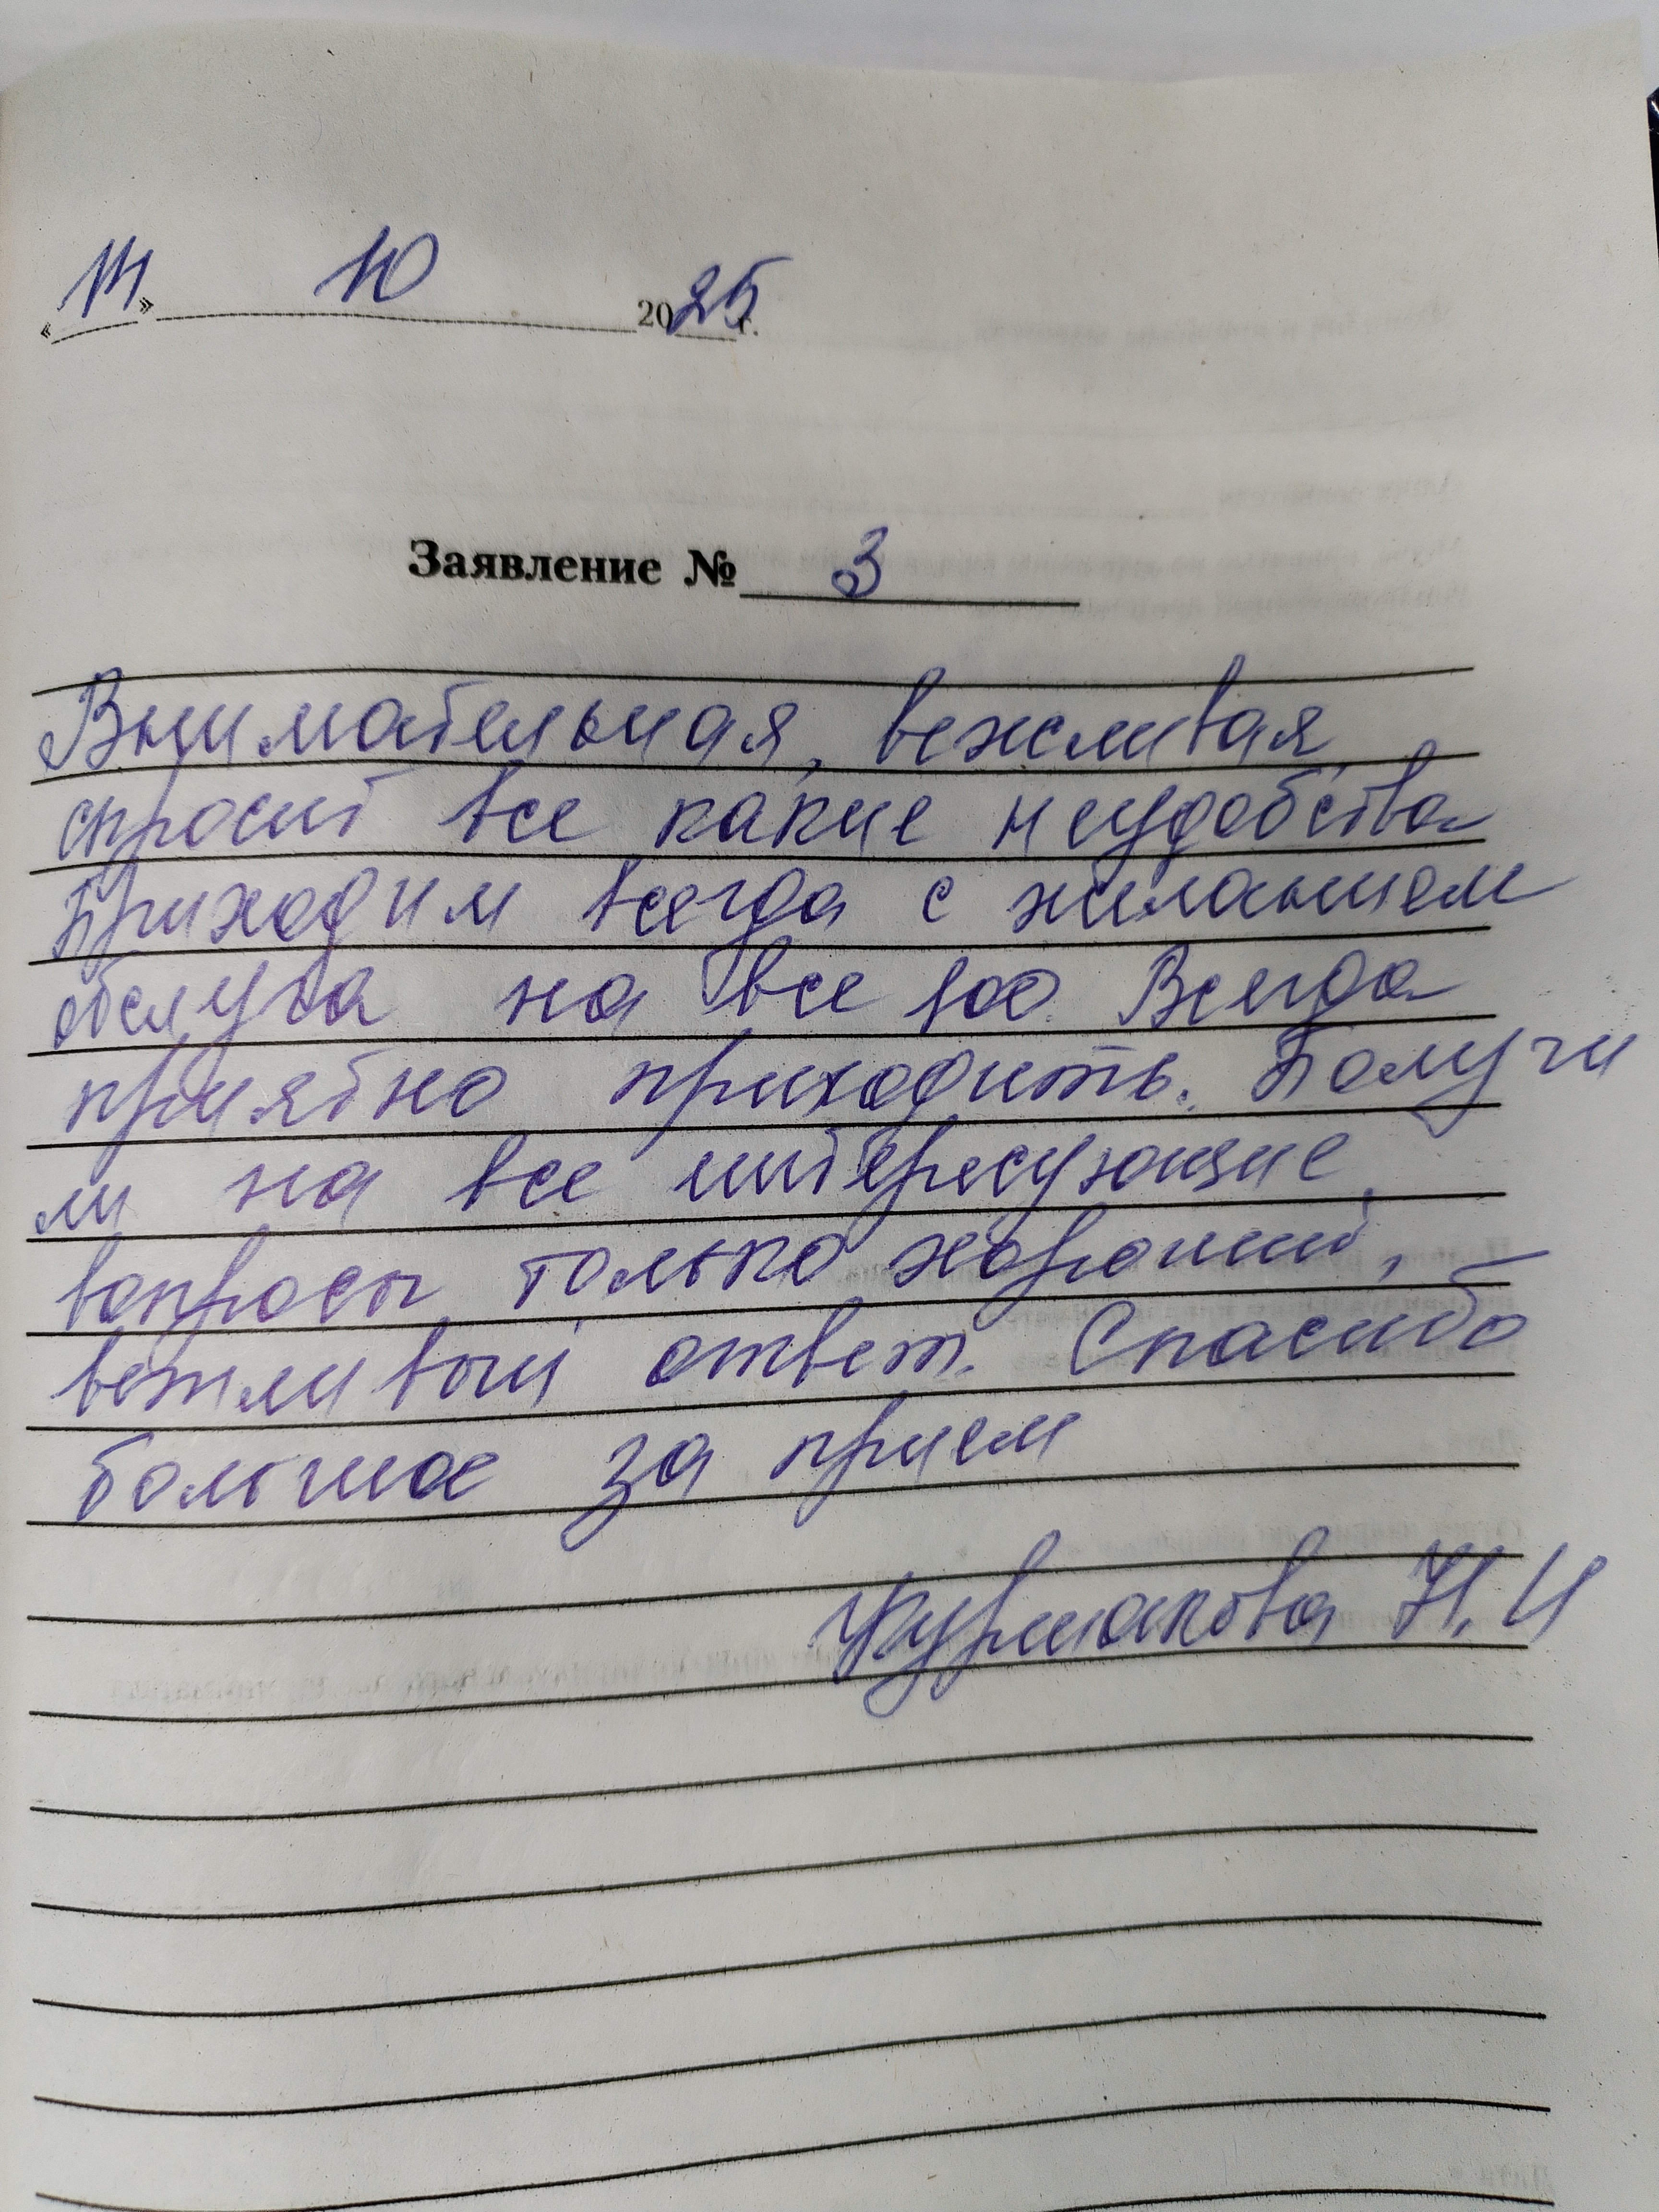 « » 10 2025 г.
Заявление № 3
Внимательная, вежливая,
спросит все какие неудобства
Приходим всегда с желанием
обслуга на все 100. Всегда
приятно приходить. Получи
ли на все интересующие
вопросы только хороший,
вежливый ответ. Спасибо
большое за прием
Н. И